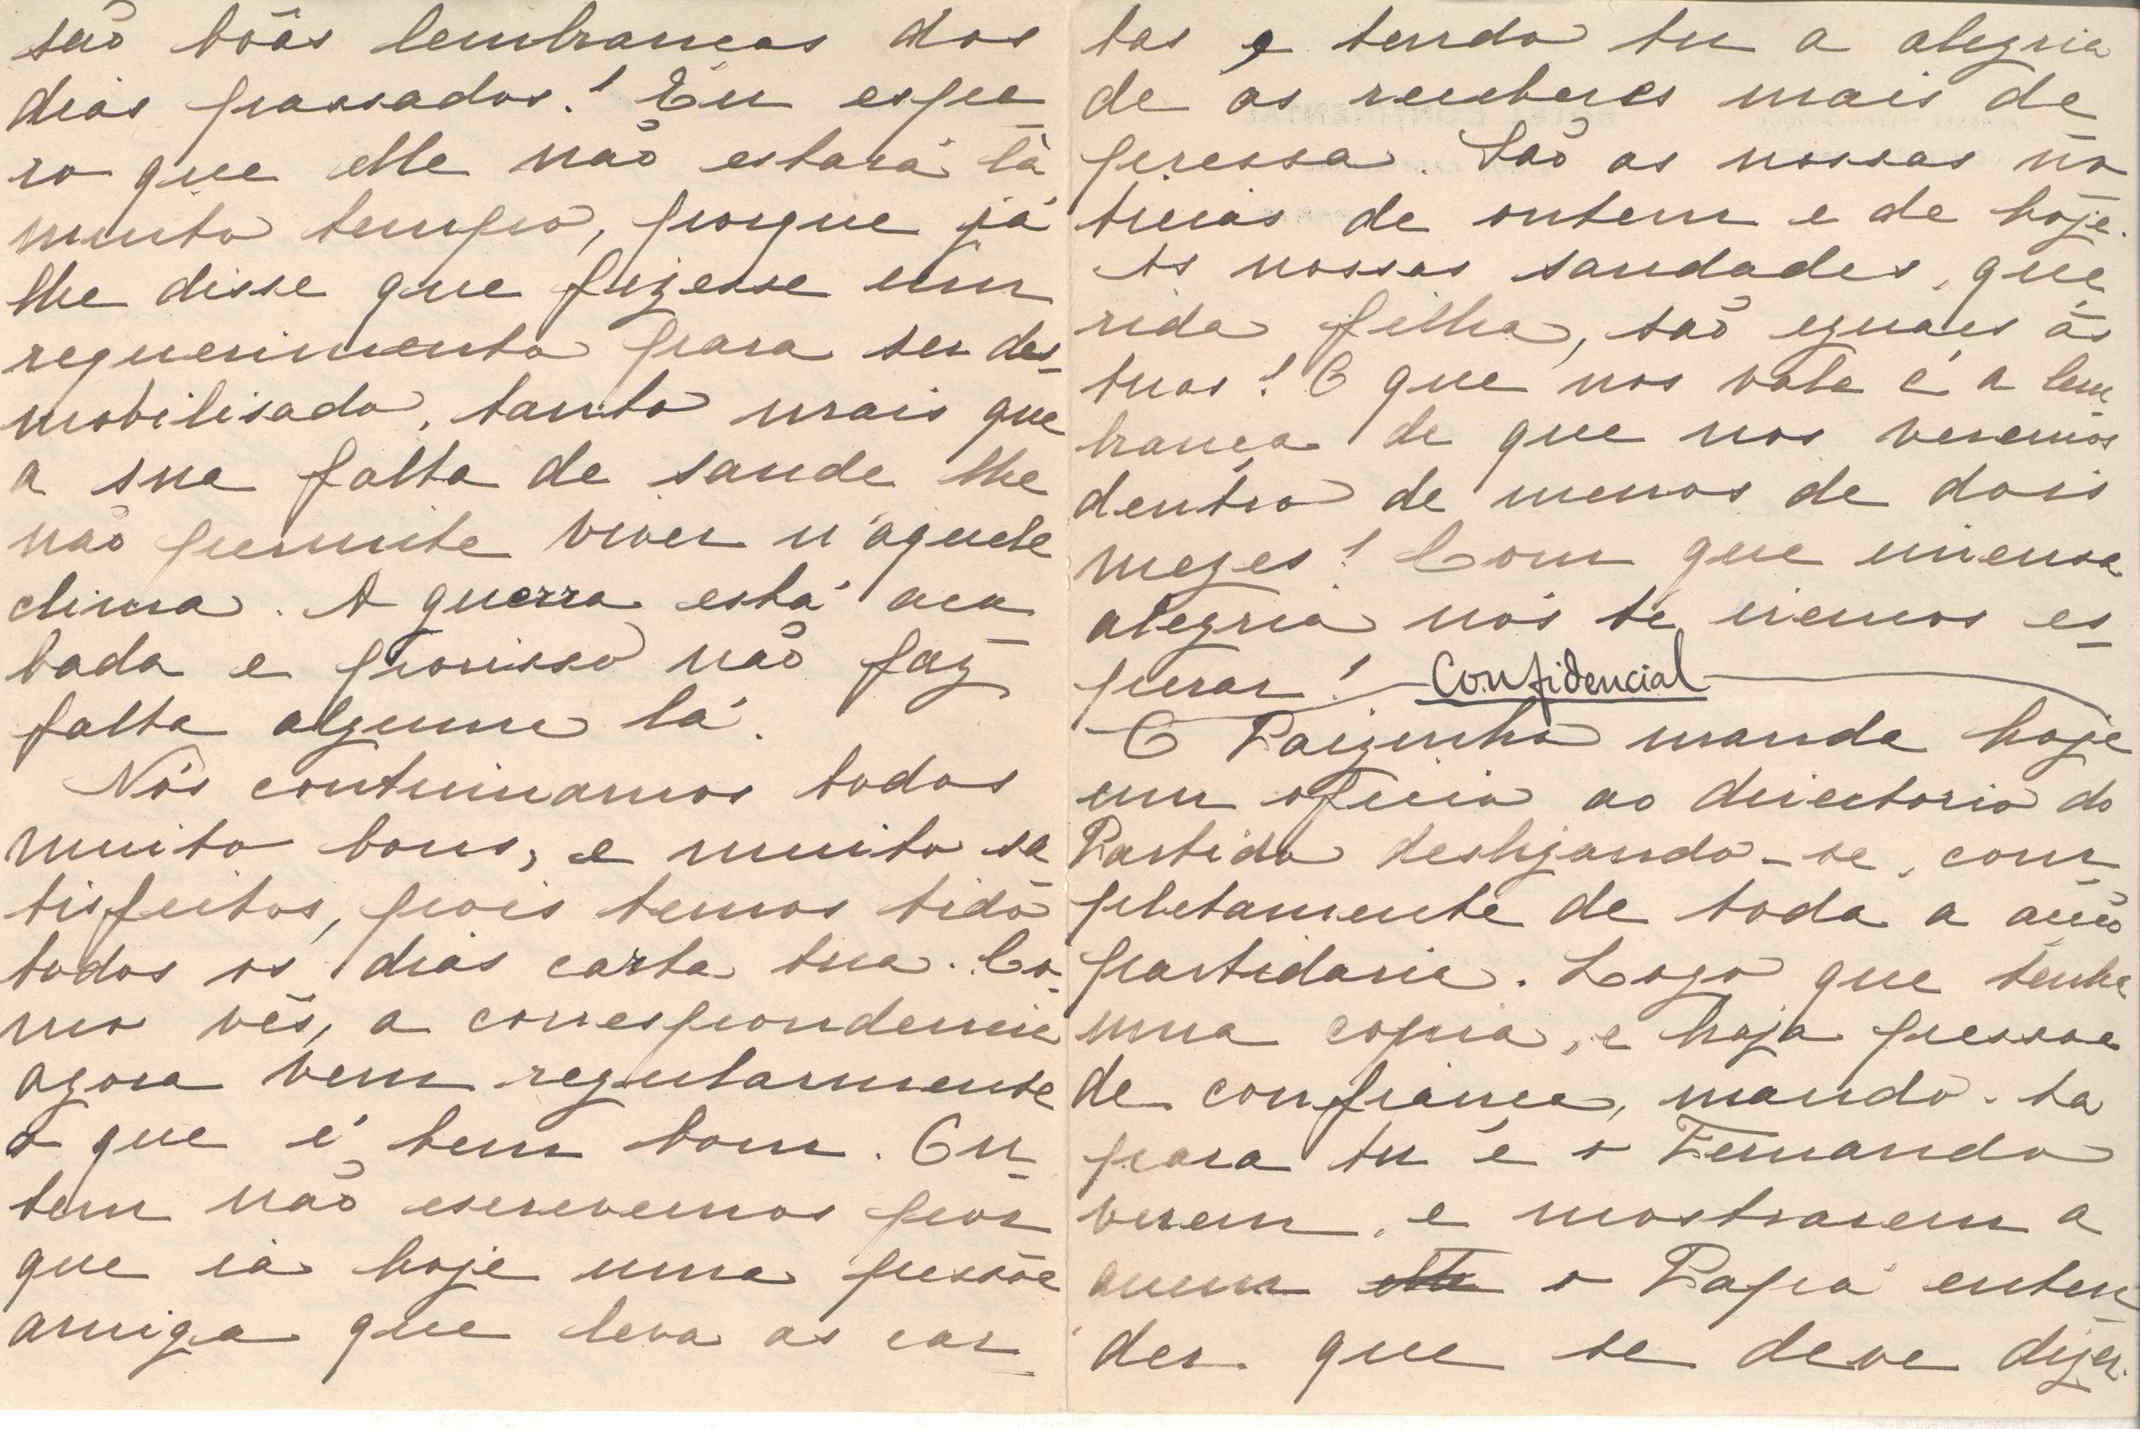 são bôas lembranças dos
dias passados! Eu espe-
ro que elle não estará lá
muito tempo, porque já
lhe disse que fizesse um
requerimento para ser des-
mobilisado, tanto mais que
a sua falta de saude lhe
não permite viver n'aquele
clima. A guerra está aca-
bada e porisso não faz
falta alguma lá.
Nós continuamos todos
muito bons, e muito sa-
tisfeitos, pois temos tido
todos os dias carta tua. Co-
mo vês, a correspondencia
agora vem regularmente
o que é bem bom. On-
tem não escrevemos por-
que ia hoje uma pessôa
amiga que leva as car-
tas e tendo tu a alegria
de as receberes mais de-
pressa. São as nossas no-
ticias de ontem e de hoje.
As nossas saudades, que-
rida filha, são eguaes ás
tuas! O que nos vale é a lem-
brança de que nos veremos
dentro de menos de dois
mezes! Com que imensa
alegria nós te iremos es-
perar! Confidencial
O Paizinho manda hoje
um oficio ao directorio do
Partido desligando-se, com-
pletamente de toda a ação
partidaria. Logo que tenha
uma copia, e haja pessoa
de confiança, mando-ta
para tu e o Fernando
verem, e mostrarem a
quem o Papá enten-
der que se deve dizer.